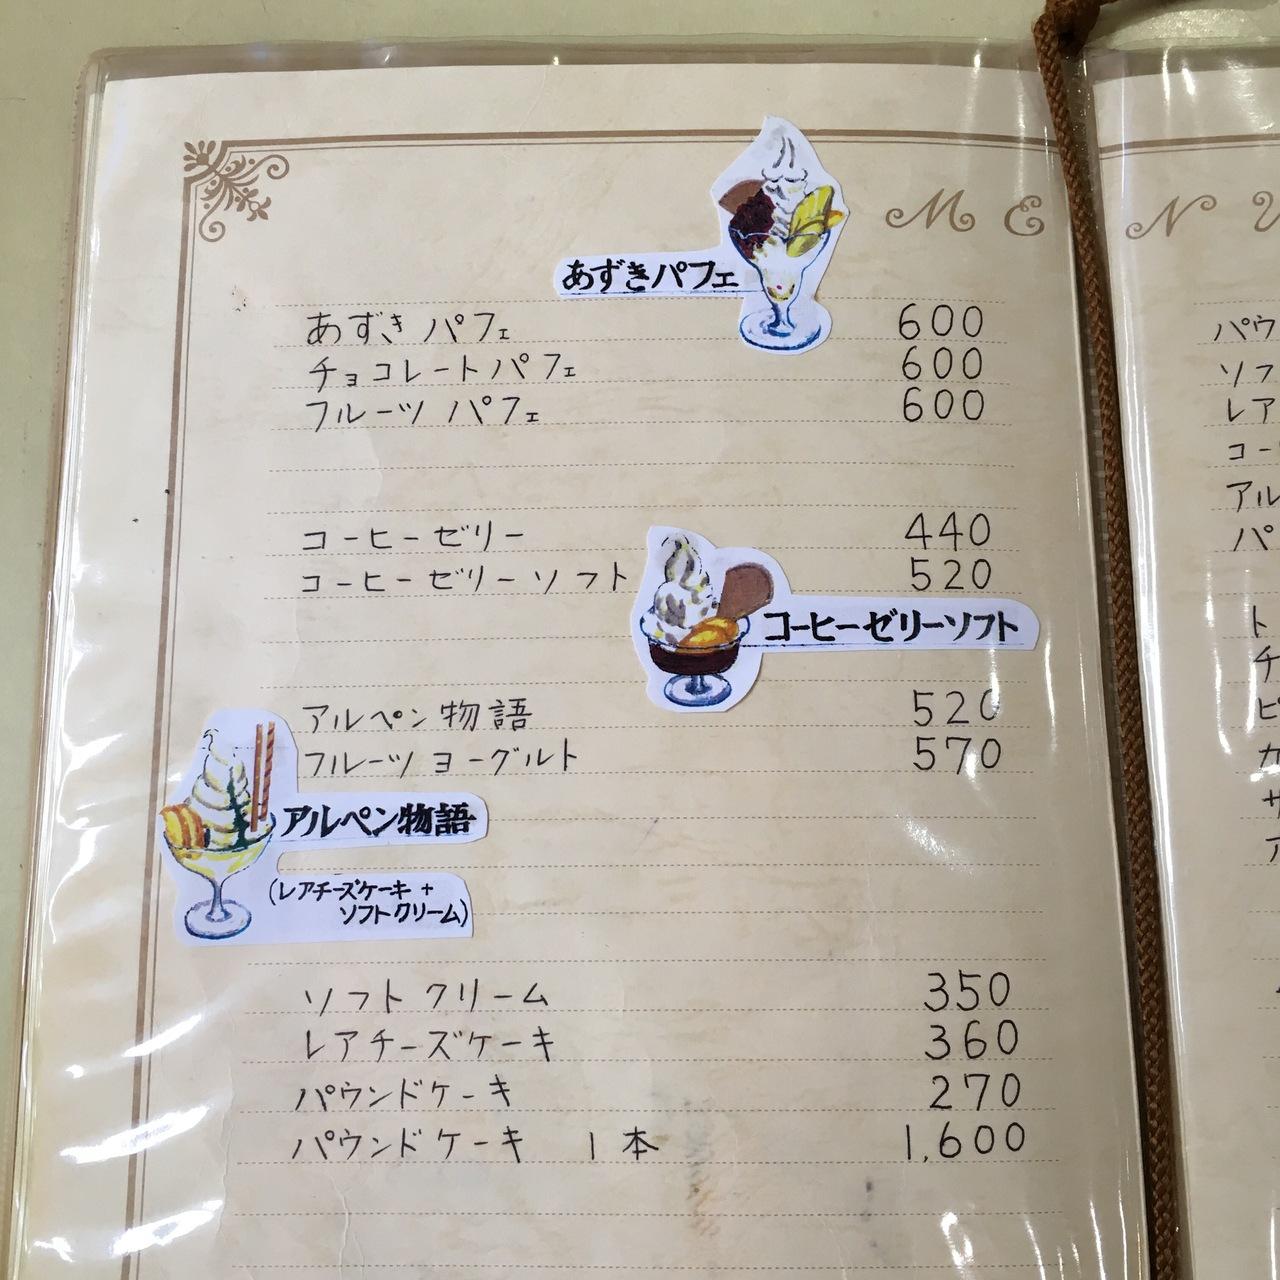 MENU
あずきパフェ
あずきパフェ 600
チョコレートパフェ 600
フルーツパフェ 600
コーヒーゼリー 440
コーヒーゼリーソフト 520
コーヒーゼリーソフト
アルペン物語 520
フルーツヨーグルト 570
アルペン物語
(レアチーズケーキ+
ソフトクリーム)
ソフトクリーム 350
レアチーズケーキ 360
パウンドケーキ 270
パウンドケーキ 1本 1,600
パウ
ソフ
レア
コー
アル
パ
ト
チ
ピ
カ
サ
ア